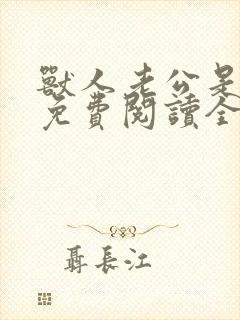 獸人老公是
免費閱讀全
聶長江